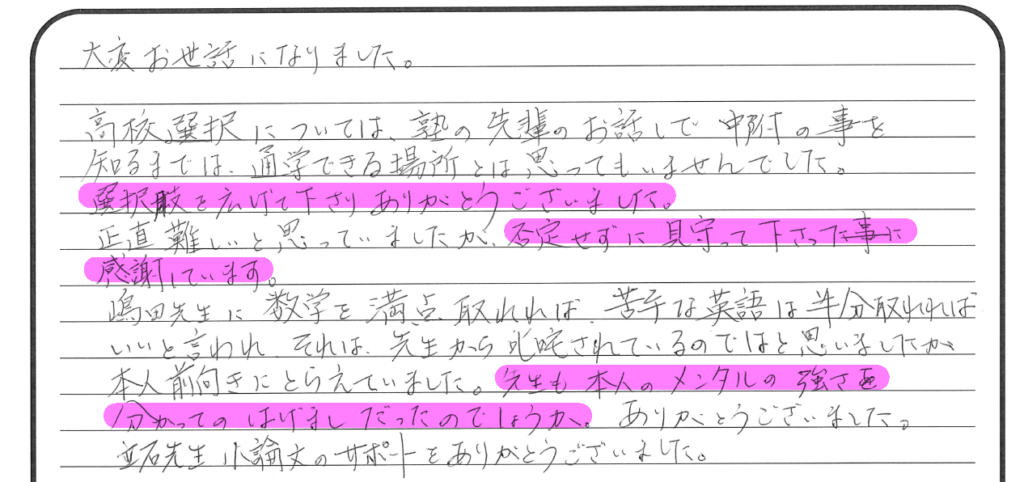 大変お世話になりました。
高校選択については、塾の先輩のお話しで中附の事を
知るまでは、通学できる場所とは思ってもいませんでした。
選択肢を広げて下さりありがとうございました。
正直難しいと思っていましたが、否定せずに見守って下さった事に
感謝しています。
嶋田先生に数学を満点取れれば、苦手な英語は半分取れれば
いいと言われ、それは、先生から叱咤されているのではと思いましたが
本人前向きにとらえていました。先生も本人のメンタルの強さを
分かってのはげましだったのでしょうか。ありがとうございました。
立石先生小論文のサポートをありがとうございました。